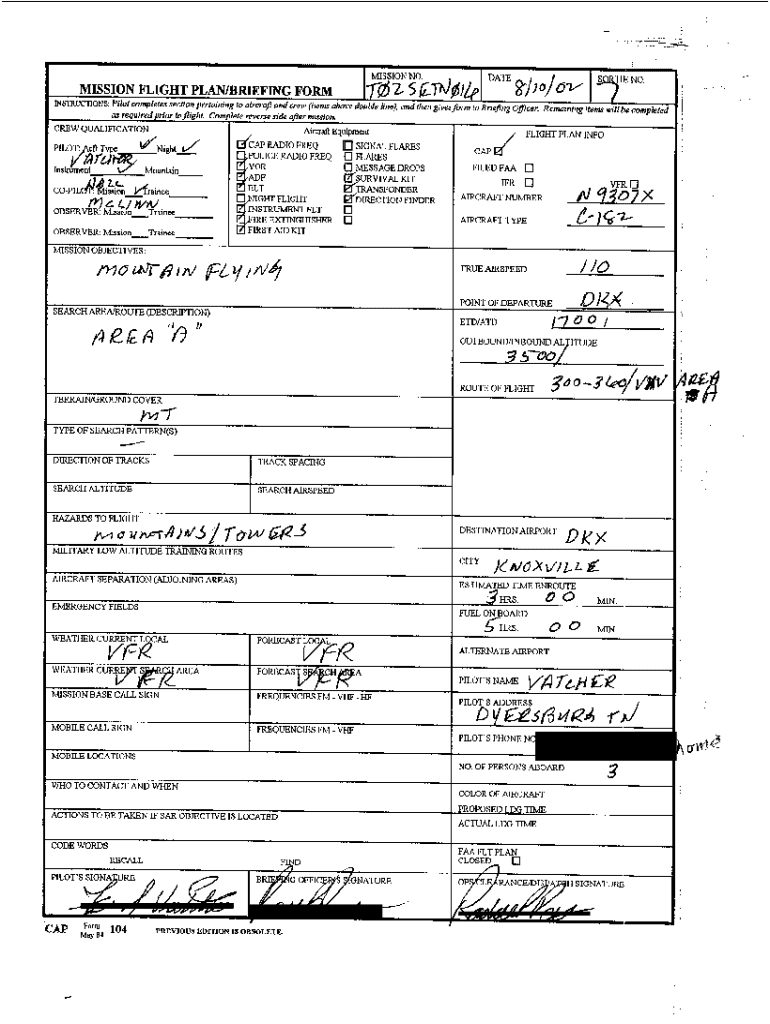 MISSION FLIGHT PLAN/BRIEFING FORM
MISSION NO.
T02SETN016
DATE
8/10/02
SORTIE NO.
INSTRUCTIONS: Pilot completes section pertaining to aircraft and crew (items above double line), and then gives form to Briefing Officer. Remaining items will be completed
as required prior to flight. Complete reverse side after mission.
CREW QUALIFICATION
PILOT: Acft Type Night
VATCHER
Instrument Mountain
CO-PILOT: Mission Trainee
McLINN
OBSERVER: Mission Trainee
OBSERVER: Mission Trainee
Aircraft Equipment
CAP RADIO FREQ
POLICE RADIO FREQ
VOR
ADF
ELT
NIGHT FLIGHT
INSTRUMENT FLT
FIRE EXTINGUISHER
FIRST AID KIT
SIGNAL FLARES
FLARES
MESSAGE DROPS
SURVIVAL KIT
TRANSPONDER
DIRECTION FINDER
FLIGHT PLAN INFO
CAP
FILED FAA
IFR VFR
AIRCRAFT NUMBER N9307X
AIRCRAFT TYPE C-182
MISSION OBJECTIVES:
MOUNTAIN FLYING
TRUE AIRSPEED 110
POINT OF DEPARTURE DKX
SEARCH AREA/ROUTE (DESCRIPTION)
AREA "A"
ETD/ATD 1700/
OUTBOUND/INBOUND ALTITUDE
3500/
ROUTE OF FLIGHT 300-360/ AREA
A
TERRAIN/GROUND COVER
MT
TYPE OF SEARCH PATTERN(S)
—
DIRECTION OF TRACKS
TRACK SPACING
SEARCH ALTITUDE
SEARCH AIRSPEED
HAZARDS TO FLIGHT
MOUNTAINS/TOWERS
DESTINATION AIRPORT DKX
MILITARY LOW ALTITUDE TRAINING ROUTES
CITY KNOXVILLE
AIRCRAFT SEPARATION (ADJOINING AREAS)
ESTIMATED TIME ENROUTE
3 HRS. 00 MIN.
EMERGENCY FIELDS
FUEL ON BOARD
5 HRS. 00 MIN
WEATHER CURRENT LOCAL
VFR
FORECAST LOCAL
VFR
ALTERNATE AIRPORT
WEATHER CURRENT SEARCH AREA
VFR
FORECAST SEARCH AREA
VFR
PILOT'S NAME VATCHER
MISSION BASE CALL SIGN
FREQUENCIES FM - VHF - HF
PILOT'S ADDRESS
DYERSBURG TN
MOBILE CALL SIGN
FREQUENCIES FM - VHF
PILOT'S PHONE NO
home
MOBILE LOCATIONS
NO. OF PERSONS ABOARD 3
WHO TO CONTACT AND WHEN
COLOR OF AIRCRAFT
PROPOSED LDG TIME
ACTIONS TO BE TAKEN IF SAR OBJECTIVE IS LOCATED
ACTUAL LDG TIME
CODE WORDS
RECALL FIND
FAA FLT PLAN
CLOSED
PILOT'S SIGNATURE
BRIEFING OFFICER'S SIGNATURE
OPS CLEARANCE/DISPATCH SIGNATURE
CAP Form May 84 104 PREVIOUS EDITION IS OBSOLETE.